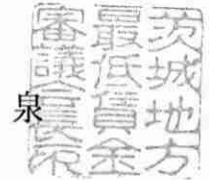 茨城地方
最低賃金
審議会長印
泉